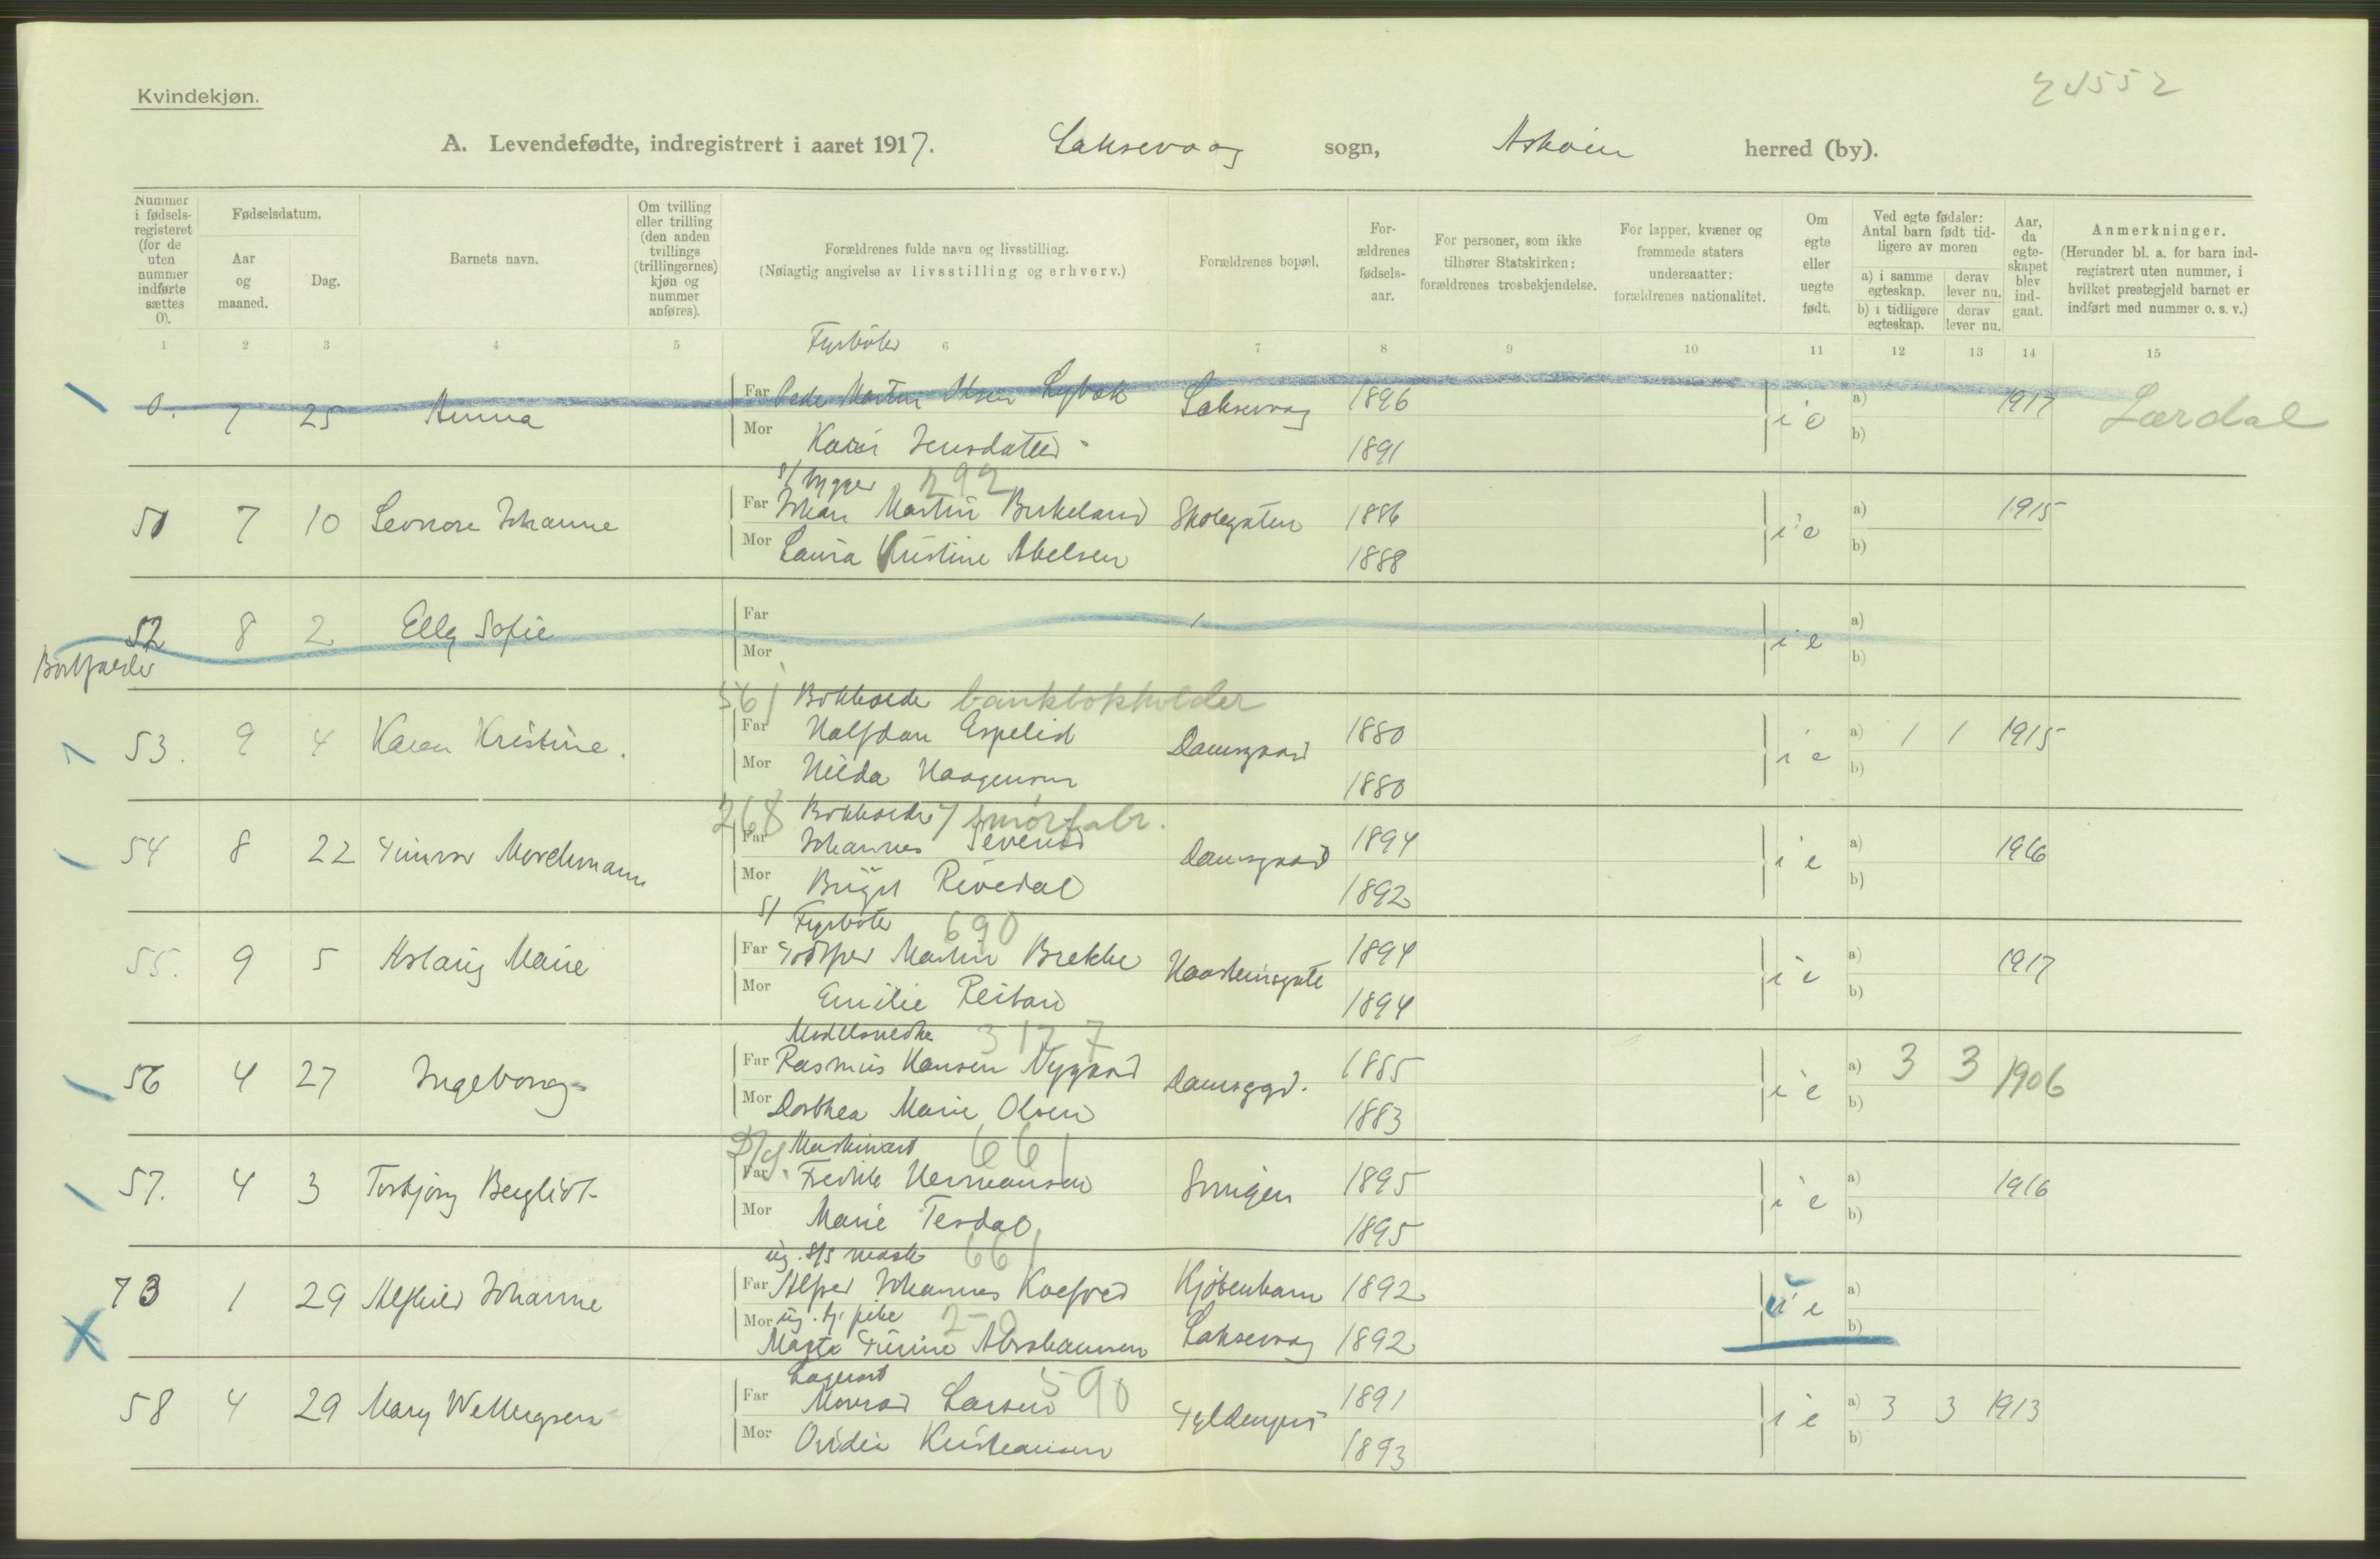 Kvindekjøn.
24552
A. Levendefødte, indregistrert i aaret 1917. Laksevaag sogn, Askøin herred (by).
Nummer i fødsels-registeret (for de uten nummer indførte sættes 0).
Fødselsdatum.
Aar og maaned.
Dag.
Barnets navn.
Om tvilling eller trilling (den anden tvillings (trillingernes) kjøn og nummer anføres).
Forældrenes fulde navn og livsstilling.
(Nøiagtig angivelse av livsstilling og erhverv.)
Forældrenes bopæl.
For-ældrenes fødsels-aar.
For personer, som ikke tilhører Statskirken: forældrenes trosbekjendelse.
For lapper, kvæner og fremmede staters undersaatter: forældrenes nationalitet.
Om egte eller uegte født.
Ved egte fødsler: Antal barn født tid-ligere av moren
a) i samme egteskap.
derav lever nu.
b) i tidligere egteskap.
derav lever nu.
Aar, da egte-skapet blev ind-gaat.
Anmerkninger.
(Herunder bl. a. for barn ind-registrert uten nummer, i hvilket prestegjeld barnet er indført med nummer o. s. v.)
1 2 3 4 5 6 7 8 9 10 11 12 13 14 15
Fyrbøter
0. 7 25 Anna Far Peder Martin Olsen Laksevaag 1896 i e a) 1917 Lærdal
Mor Kari Jensdatter 1891 b)
s/ bygger 292
51 7 10 Leonore Johanne Far Johan Martin Birkeland Skolegaten 1886 i e a) 1915
Mor Laura Kristine Abelsen 1888 b)
52 8 2 Elly Sofie Far i e a)
Bortfalder Mor b)
561 Bokholder bankbokholder
53. 9 4 Karen Kristine. Far Halfdan Espelid Damsgaard 1880 i e a) 1 1 1915
Mor Hilda Haagensen 1880 b)
268 Bokholder / smørfabr.
54 8 22 Far Johannes Damsgaard 1894 i e a) 1916
Mor Birgit Rivedal 1892 b)
s/ Fyrbøter 690
55. 9 5 Aslaug Marie Far Martin Brekke 1894 i e a) 1917
Mor Emilie Reitan 1894 b)
Modelsnedker 3177
56 4 27 Ingeborg Far Rasmus Hansen Nygaard Damsggd. 1885 i e a) 3 3 1906
Mor Dorthea Marie Olsen 1883 b)
D/S. Maskinast 661
57. 4 3 Torbjørg Bergliot Far Fredrik Hermansen 1895 i e a) 1916
Mor Marie Tesdal 1895 b)
ug. s/s mask 661
73 1 29 Alfhild Johanne Far Alfred Johannes Kjøbenham 1892 u e a)
ug. tj. pike
Mor Abrahamsen Laksevaag 1892 b)
590
58 4 29 Mary Far Monrad Larsen 1891 i e a) 3 3 1913
Mor Ovidia Kristiansen 1893 b)